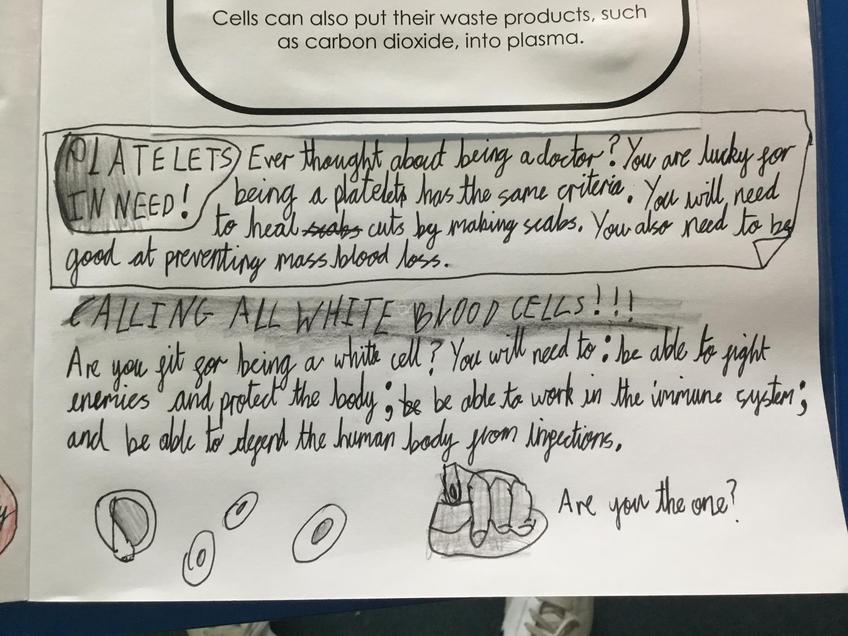 Cells can also put their waste products, such
as carbon dioxide, into plasma.
PLATELETS
IN NEED!
Ever thought about being a doctor? You are lucky for
being a platelets has the same criteria. You will need
to heal scabs cuts by making scabs. You also need to be
good at preventing mass blood loss.
CALLING ALL WHITE BLOOD CELLS!!!
Are you fit for being a white cell? You will need to: be able to fight
enemies and protect the body; be be able to work in the immune system;
and be able to defend the human body from infections.
Are you the one?